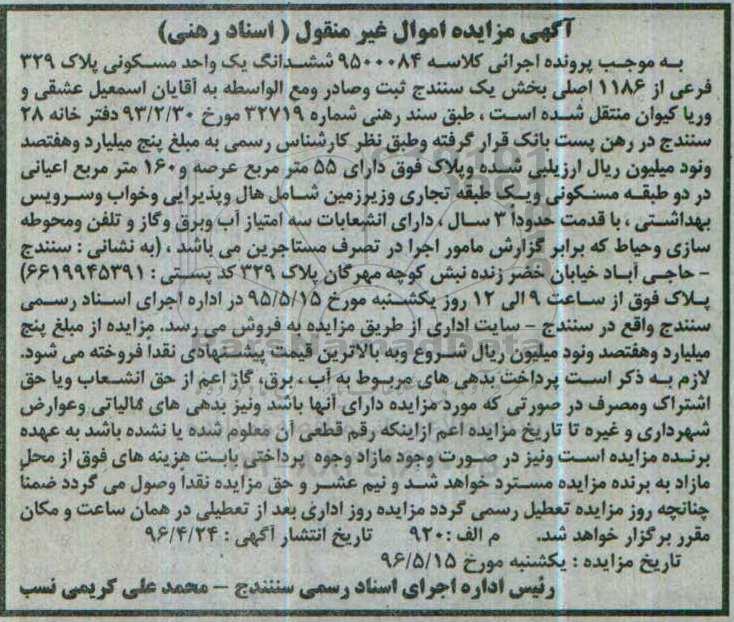 آگهی مزایده اموال غیر منقول ( اسناد رهنی)
به موجب پرونده اجرائی کلاسه ۹۵۰۰۰۸۴ ششدانگ یک واحد مسکونی پلاک ۳۲۹
فرعی از ۱۱۸۶ اصلی بخش یک سنندج ثبت وصادر ومع الواسطه به آقایان اسمعیل عشقی و
وریا کیوان منتقل شده است ، طبق سند رهنی شماره ۳۲۷۱۹ مورخ ۹۳/۲/۳۰ دفتر خانه ۲۸
سنندج در رهن پست بانک قرار گرفته وطبق نظر کارشناس رسمی به مبلغ پنج میلیارد وهفتصد
ونود میلیون ریال ارزیابی شده وپلاک فوق دارای ۵۵ متر مربع عرصه و۱۶۰ متر مربع اعیانی
در دو طبقه مسکونی ویک طبقه تجاری وزیرزمین شامل هال وپذیرایی وخواب وسرویس
بهداشتی ، با قدمت حدوداً ۳ سال ، دارای انشعابات سه امتیاز آب وبرق وگاز و تلفن ومحوطه
سازی وحیاط که برابر گزارش مامور اجرا در تصرف مستاجرین می باشد ، (به نشانی : سنندج
- حاجی آباد خیابان خضر زنده نبش کوچه مهرگان پلاک ۳۲۹ کد پستی : ۶۶۱۹۹۴۵۳۹۱)
پلاک فوق از ساعت ۹ الی ۱۲ روز یکشنبه مورخ ۹۵/۵/۱۵ در اداره اجرای اسناد رسمی
سنندج واقع در سنندج - سایت اداری از طریق مزایده به فروش می رسد. مزایده از مبلغ پنج
میلیارد وهفتصد ونود میلیون ریال شروع وبه بالاترین قیمت پیشنهادی نقداً فروخته می شود.
لازم به ذکر است پرداخت بدهی های مربوط به آب ، برق، گاز اعم از حق انشعاب ویا حق
اشتراک ومصرف در صورتی که مورد مزایده دارای آنها باشد ونیز بدهی های مالیاتی وعوارض
شهرداری و غیره تا تاریخ مزایده اعم ازاینکه رقم قطعی آن معلوم شده یا نشده باشد به عهده
برنده مزایده است ونیز در صورت وجود مازاد وجوه پرداختی بابت هزینه های فوق از محل
مازاد به برنده مزایده مسترد خواهد شد و نیم عشر و حق مزایده نقدا وصول می گردد ضمناً
چنانچه روز مزایده تعطیل رسمی گردد مزایده روز اداری بعد از تعطیلی در همان ساعت و مکان
مقرر برگزار خواهد شد. م الف :۹۲۰ تاریخ انتشار آگهی : ۹۶/۴/۲۴
تاریخ مزایده : یکشنبه مورخ ۹۶/۵/۱۵
رئیس اداره اجرای اسناد رسمی سنندج - محمد علی کریمی نسب
ParsNamadData